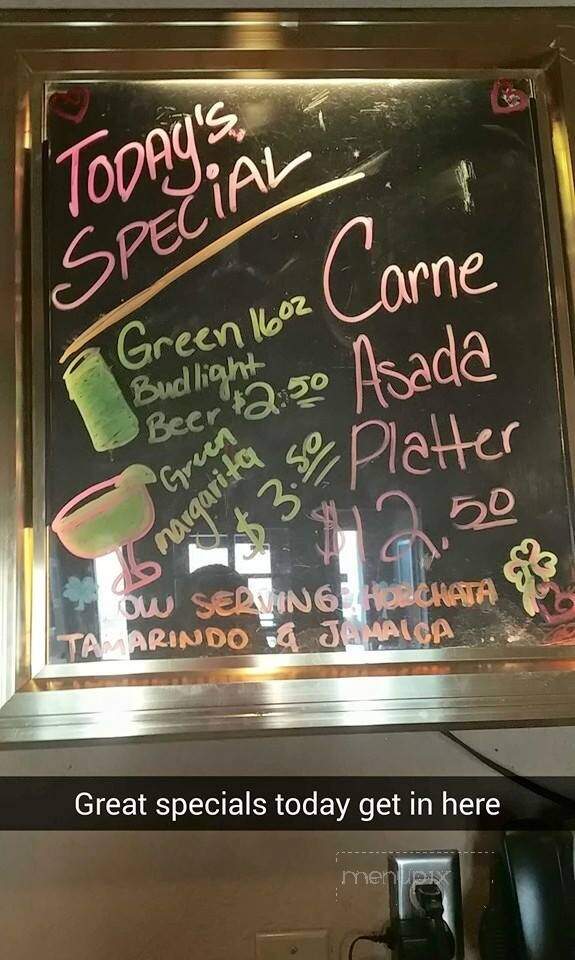 TODAY'S
SPECIAL
Green 16oz
Budlight
Beer $2.50
Green
margarita
$3.50
Carne
Asada
Platter
$12.50
NOW SERVING: HORCHATA
TAMARINDO & JAMAICA
Great specials today get in here
menupix